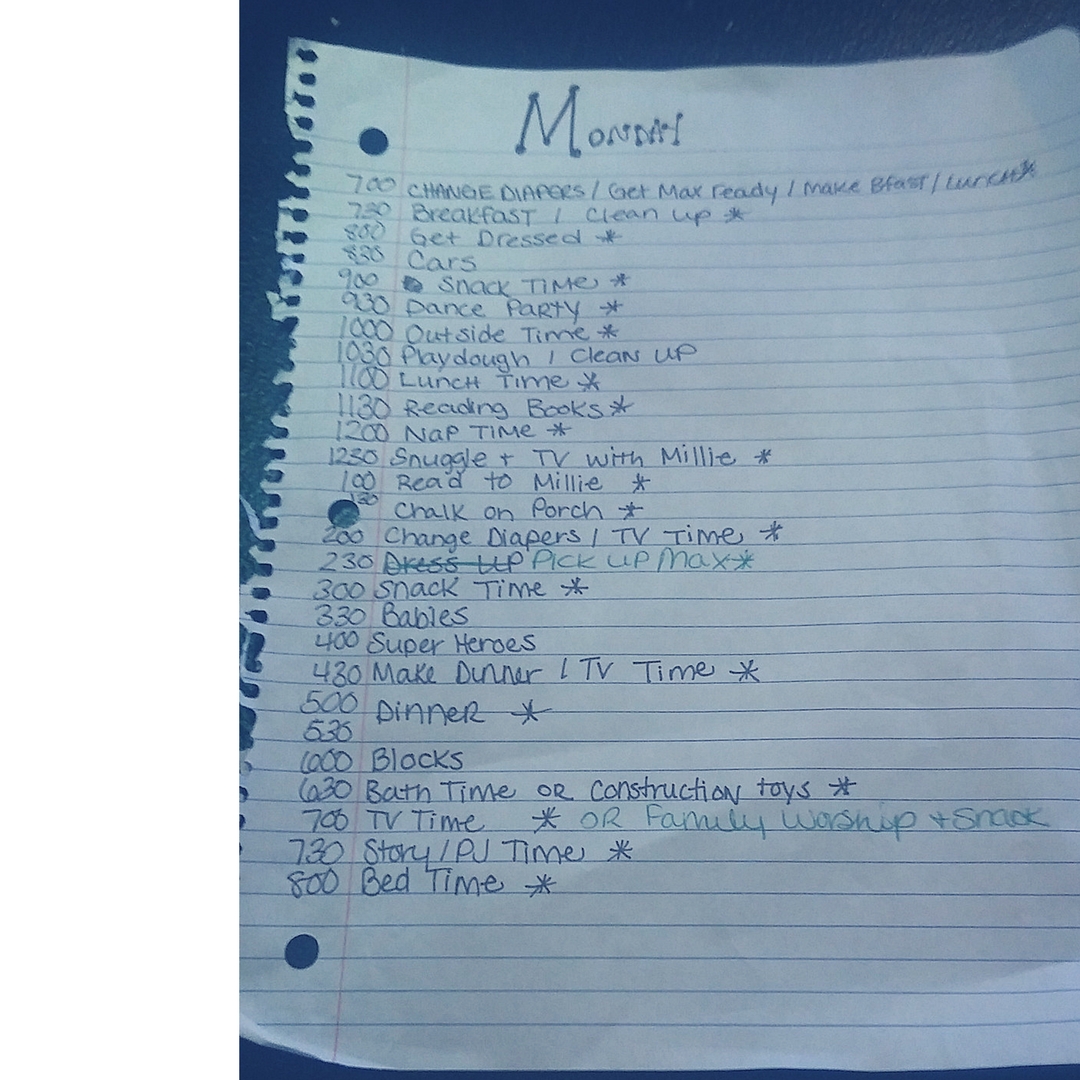 Monday
700 CHANGE DIAPERS / Get Max ready / Make Bfast / Lunch*
730 Breakfast / Clean up *
800 Get Dressed *
830 Cars
900 Snack Time *
930 Dance Party *
1000 Outside Time *
1030 Playdough / Clean up
1100 Lunch Time *
1130 Reading Books *
1200 Nap Time *
1230 Snuggle + TV with Millie *
100 Read to Millie *
130 Chalk on Porch *
200 Change Diapers / TV Time *
230 Dress up Pick up Max *
300 Snack Time *
330 Babies
400 Super Heroes
430 Make Dinner / TV Time *
500 Dinner *
530
600 Blocks
630 Bath Time OR Construction toys *
700 TV Time * OR Family Worship + Snack
730 Story / PJ Time *
800 Bed Time *